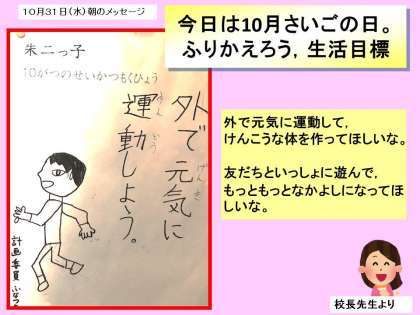 １０月３１日（水）朝のメッセージ
今日は10月さいごの日。
ふりかえろう，生活目標
朱二っ子
10がつのせいかつもくひょう
外で元気に
運動しよう。
げんき
うんどう
計画委員
外で元気に運動して，
けんこうな体を作ってほしいな。
友だちといっしょに遊んで，
もっともっとなかよしになってほ
しいな。
校長先生より